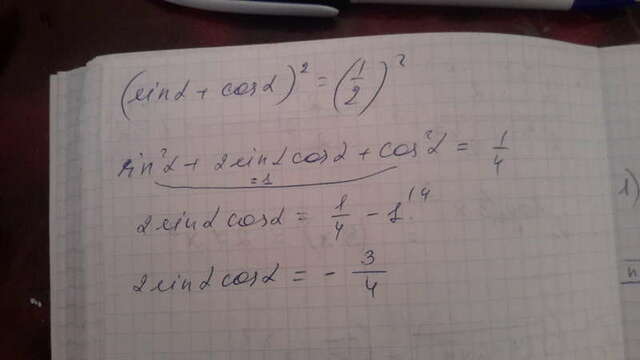 (sinα + cosα)² = (1/2)²
sin²α + 2sinαcosα + cos²α = 1/4
=1
2sinαcosα = 1/4 - 1^(4
2sinαcosα = - 3/4
1)
n